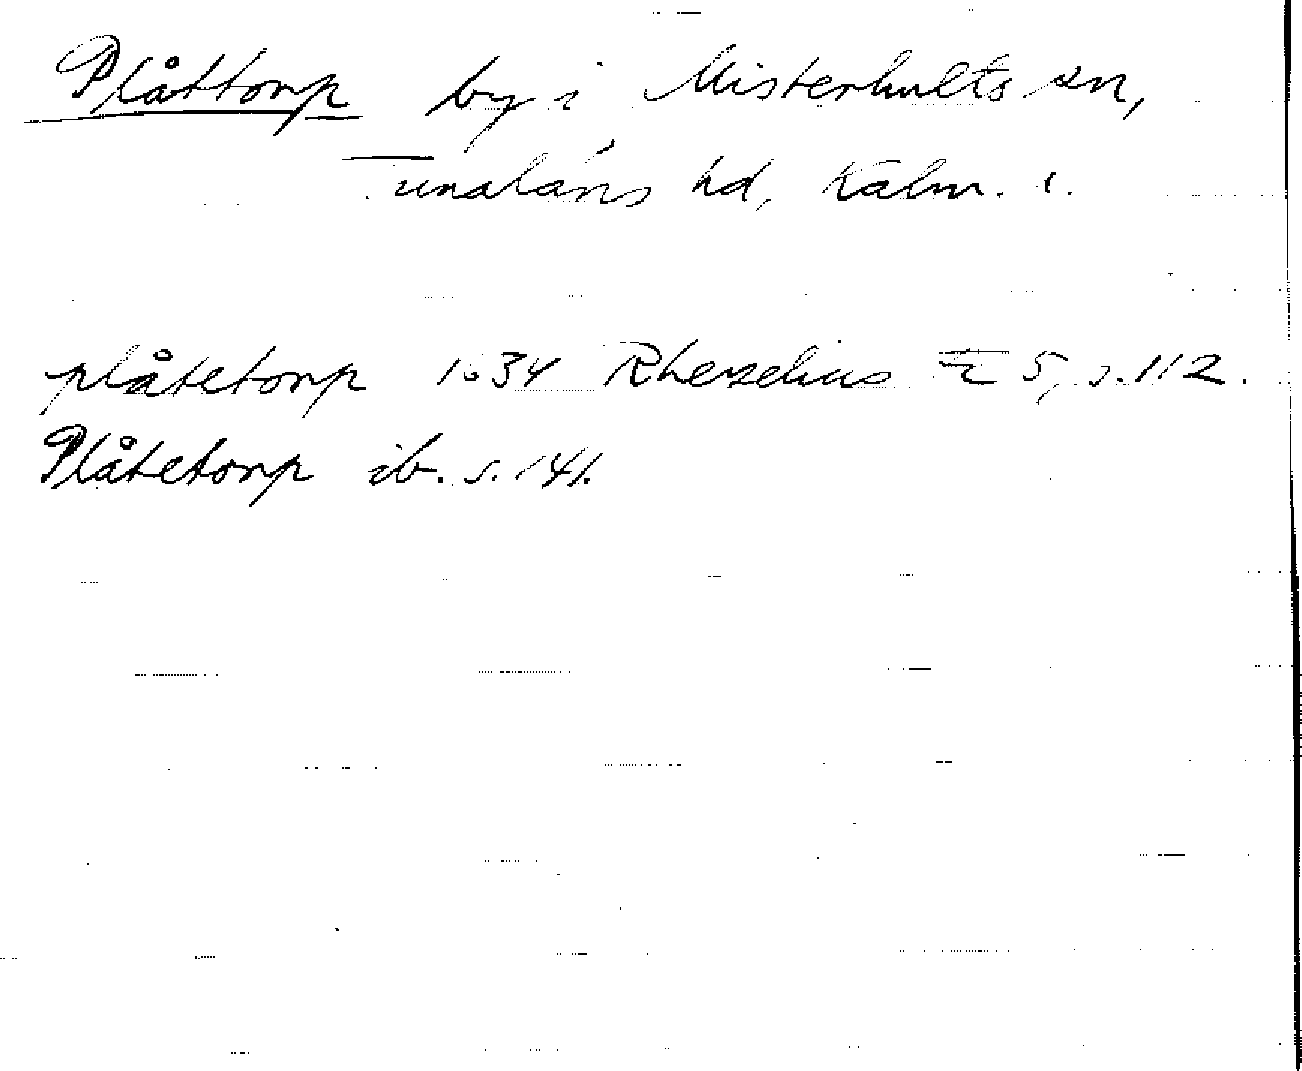 Plåttorp by i Misterhults sn,
Tunaläns hd, Kalm. l.
plåtetorp 1634 Rhezelius 5, s. 112.
Plåtetorp ib. s. 141.